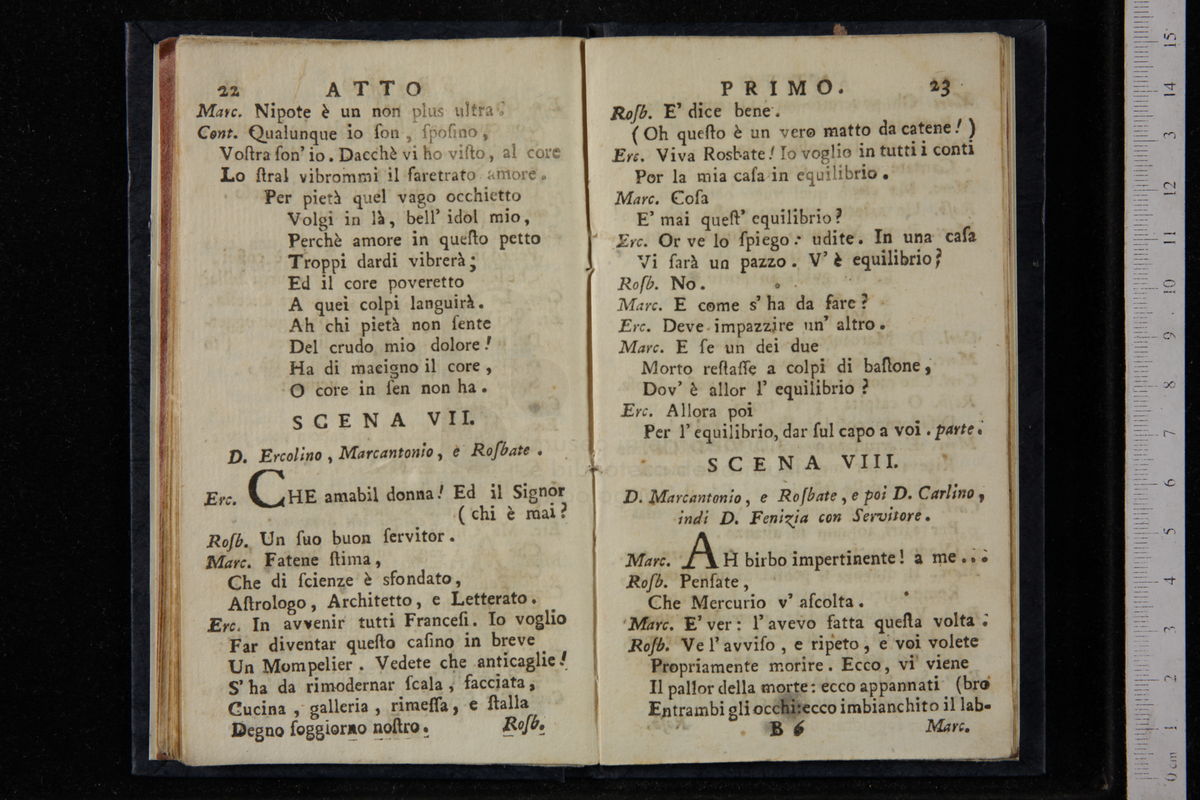 22 ATTO
Marc. Nipote è un non plus ultra.
Cont. Qualunque io ſon, ſpoſino,
Voſtra ſon' io. Dacchè vi ho viſto, al core
Lo ſtral vibrommi il faretrato amore.
Per pietà quel vago occhietto
Volgi in là, bell' idol mio,
Perchè amore in queſto petto
Troppi dardi vibrerà;
Ed il core poveretto
A quei colpi languirà.
Ah chi pietà non ſente
Del crudo mio dolore!
Ha di macigno il core,
O core in ſen non ha.
SCENA VII.
D. Ercolino, Marcantonio, e Roſbate.
Erc. CHE amabil donna! Ed il Signor
(chi è mai?
Roſb. Un ſuo buon ſervitor.
Marc. Fatene ſtima,
Che di ſcienze è sfondato,
Aſtrologo, Architetto, e Letterato.
Erc. In avvenir tutti Franceſi. Io voglio
Far diventar queſto caſino in breve
Un Mompelier. Vedete che anticaglie!
S' ha da rimodernar ſcala, facciata,
Cucina, galleria, rimeſſa, e ſtalla
Degno ſoggiorno noſtro. Roſb.
PRIMO. 23
Roſb. E' dice bene.
(Oh queſto è un vero matto da catene!)
Erc. Viva Rosbate! Io voglio in tutti i conti
Por la mia caſa in equilibrio.
Marc. Coſa
E' mai queſt' equilibrio?
Erc. Or ve lo ſpiego: udite. In una caſa
Vi ſarà un pazzo. V' è equilibrio?
Roſb. No.
Marc. E come s' ha da fare?
Erc. Deve impazzire un' altro.
Marc. E ſe un dei due
Morto reſtaſſe a colpi di baſtone,
Dov' è allor l' equilibrio?
Erc. Allora poi
Per l' equilibrio, dar ſul capo a voi. parte.
SCENA VIII.
D. Marcantonio, e Roſbate, e poi D. Carlino,
indi D. Fenizia con Servitore.
Marc. AH birbo impertinente! a me...
Roſb. Penſate,
Che Mercurio v' aſcolta.
Marc. E' ver: l' avevo fatta queſta volta.
Roſb. Ve l' avviſo, e ripeto, e voi volete
Propriamente morire. Ecco, vi viene
Il pallor della morte: ecco appannati (bro
Entrambi gli occhi: ecco imbianchito il lab-
B 6 Marc.
0 cm 1 2 3 4 5 6 7 8 9 10 11 12 13 14 15